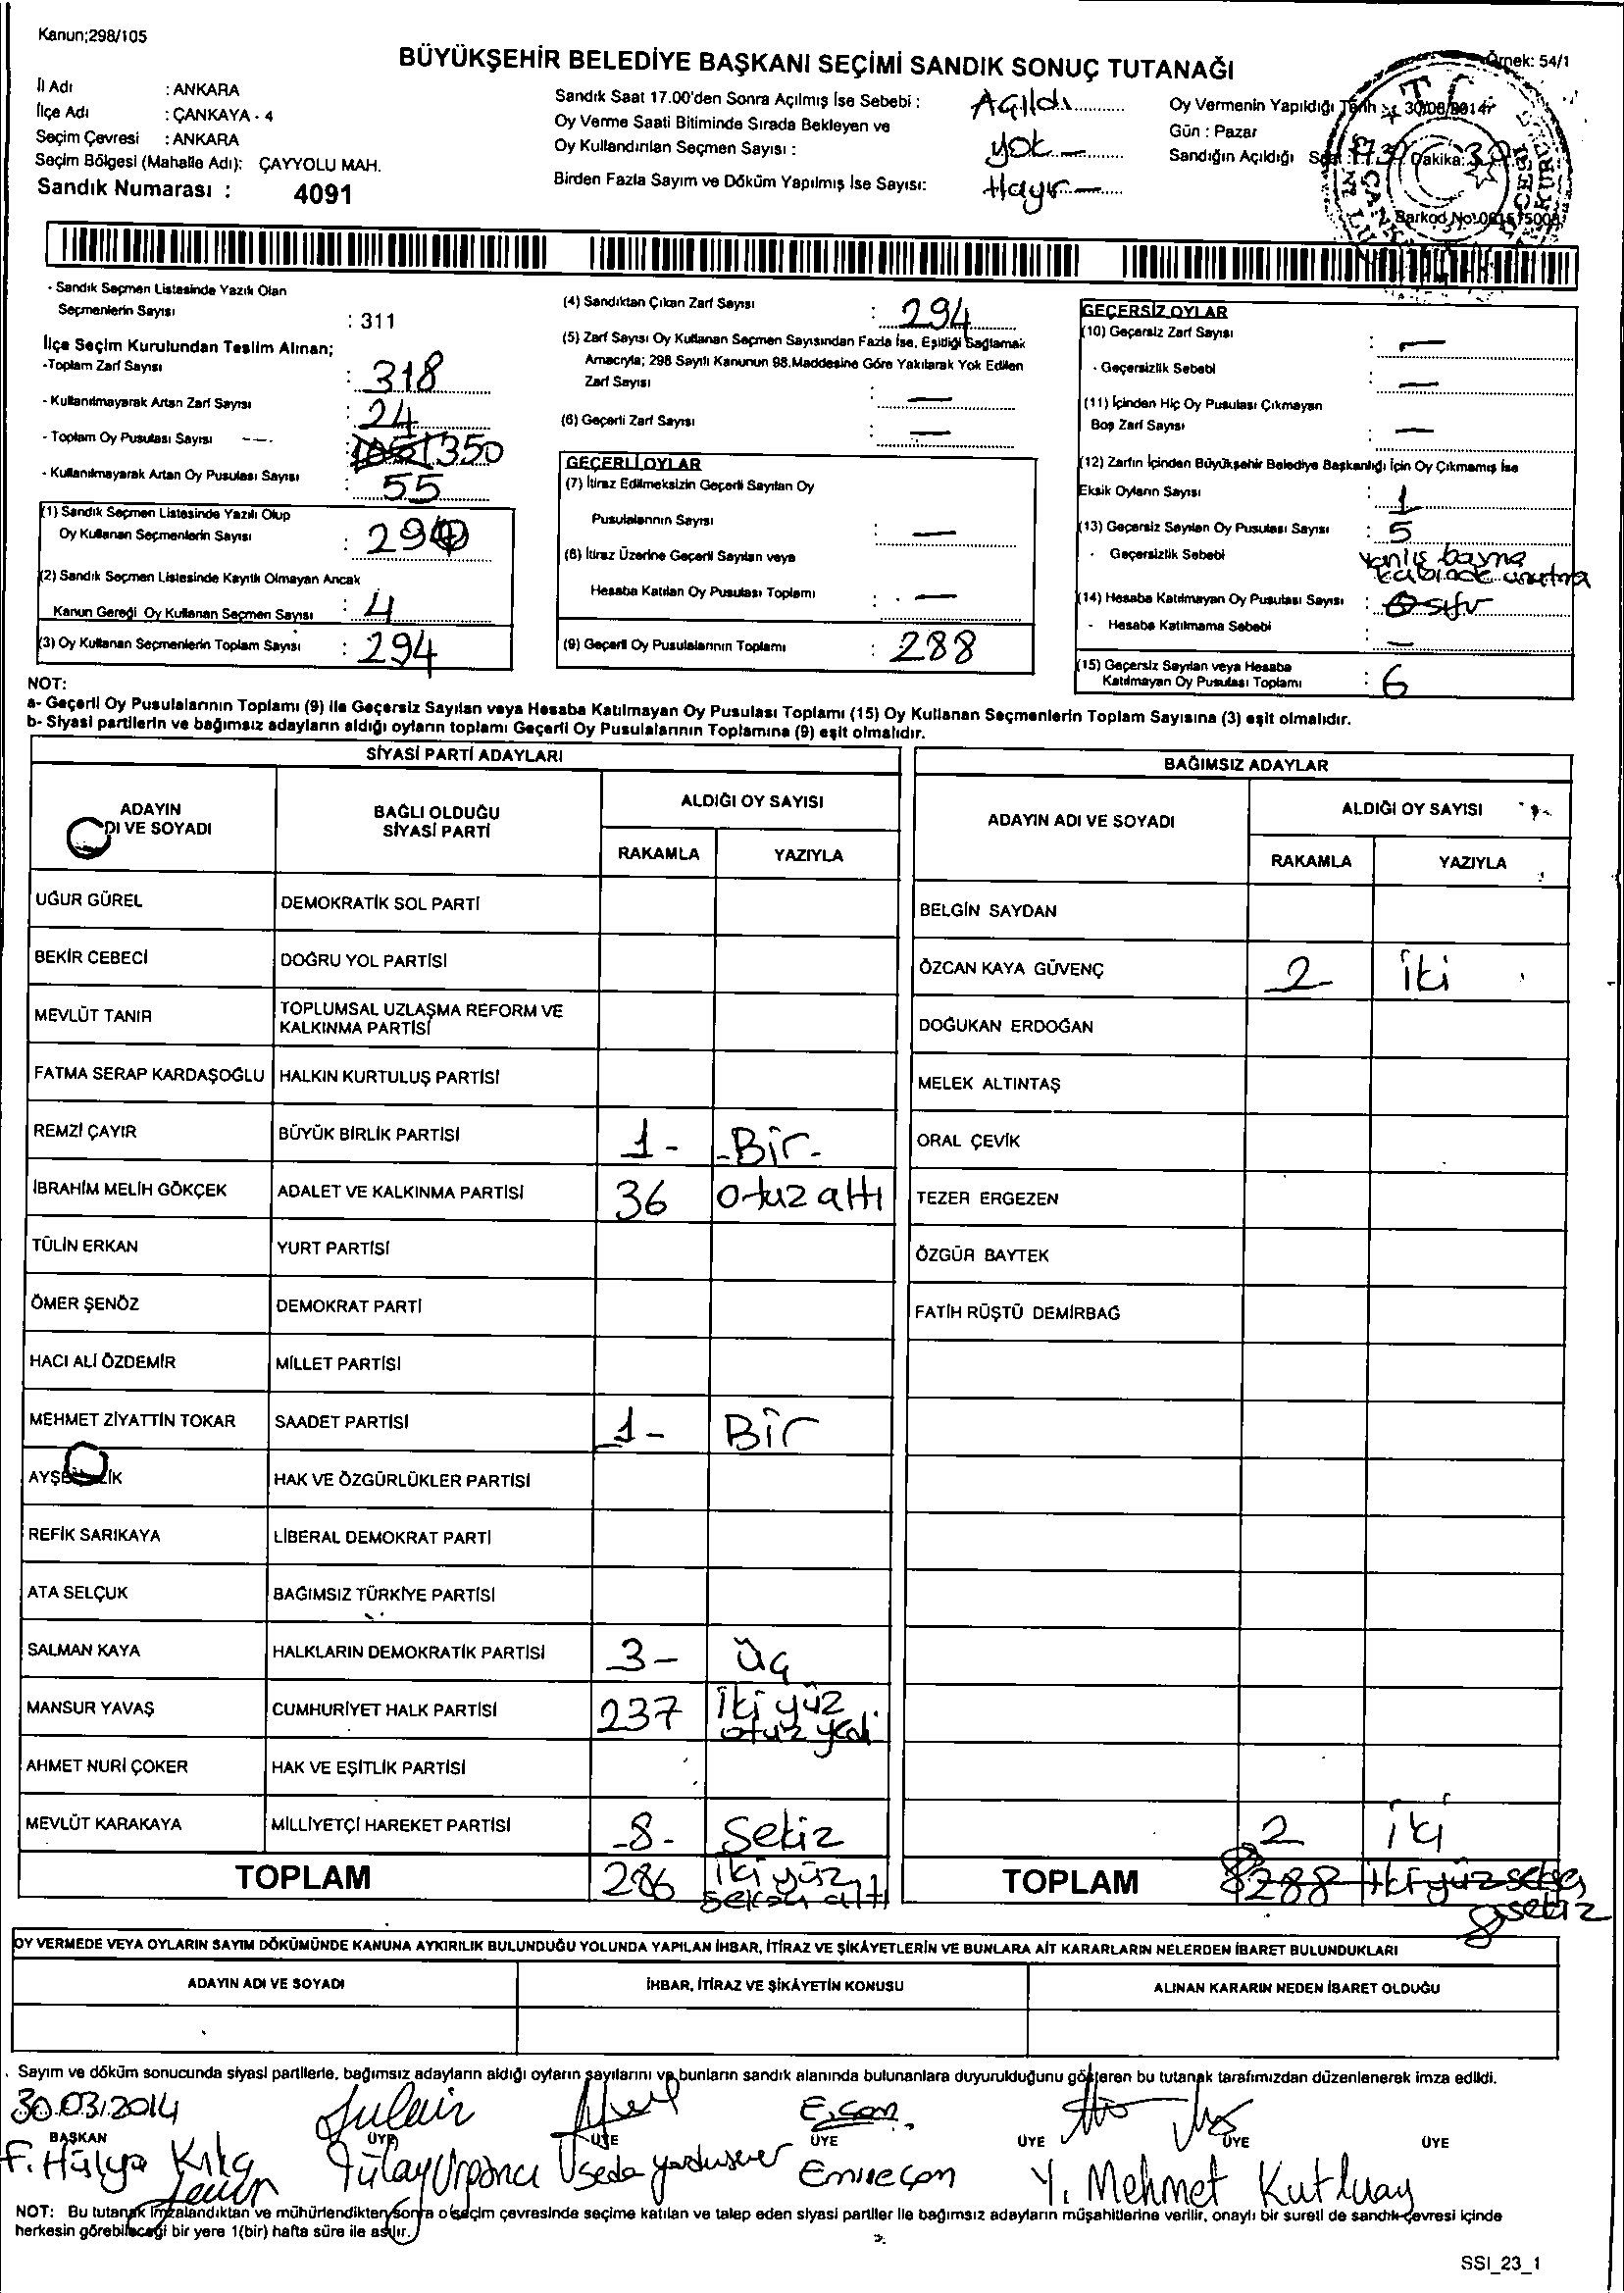 Kanun;298/105
BÜYÜKŞEHİR BELEDİYE BAŞKANI SEÇİMİ SANDIK SONUÇ TUTANAĞI
Örnek: 54/1
İl Adı : ANKARA
İlçe Adı : ÇANKAYA - 4
Seçim Çevresi : ANKARA
Seçim Bölgesi (Mahalle Adı): ÇAYYOLU MAH.
Sandık Numarası : 4091
Sandık Saat 17.00'den Sonra Açılmış İse Sebebi : Açıldı
Oy Verme Saati Bitiminde Sırada Bekleyen ve
Oy Kullandırılan Seçmen Sayısı : yok —
Birden Fazla Sayım ve Döküm Yapılmış İse Sayısı: Hayır —
Oy Vermenin Yapıldığı Tarih : 30/03/2014
Gün : Pazar
Sandığın Açıldığı Saat : Dakika: 30
Barkod No:
T.C.
- Sandık Seçmen Listesinde Yazılı Olan
Seçmenlerin Sayısı : 311
İlçe Seçim Kurulundan Teslim Alınan;
-Toplam Zarf Sayısı : 318
- Kullanılmayarak Artan Zarf Sayısı : 24
- Toplam Oy Pusulası Sayısı : 350
- Kullanılmayarak Artan Oy Pusulası Sayısı : 55
(1) Sandık Seçmen Listesinde Yazılı Olup
Oy Kullanan Seçmenlerin Sayısı : 290
(2) Sandık Seçmen Listesinde Kayıtlı Olmayan Ancak
Kanun Gereği Oy Kullanan Seçmen Sayısı : 4
(3) Oy Kullanan Seçmenlerin Toplam Sayısı : 294
(4) Sandıktan Çıkan Zarf Sayısı : 294
(5) Zarf Sayısı Oy Kullanan Seçmen Sayısından Fazla İse, Eşitliği Sağlamak
Amacıyla; 298 Sayılı Kanunun 98.Maddesine Göre Yakılarak Yok Edilen
Zarf Sayısı : —
(6) Geçerli Zarf Sayısı : —
GEÇERLİ OYLAR
(7) İtiraz Edilmeksizin Geçerli Sayılan Oy
Pusulalarının Sayısı : —
(8) İtiraz Üzerine Geçerli Sayılan veya
Hesaba Katılan Oy Pusulası Toplamı : —
(9) Geçerli Oy Pusulalarının Toplamı : 288
GEÇERSİZ OYLAR
(10) Geçersiz Zarf Sayısı : —
- Geçersizlik Sebebi : —
(11) İçinden Hiç Oy Pusulası Çıkmayan
Boş Zarf Sayısı : —
(12) Zarfın İçinden Büyükşehir Belediye Başkanlığı İçin Oy Çıkmamış İse
Eksik Oyların Sayısı : 1
(13) Geçersiz Sayılan Oy Pusulası Sayısı : 5
- Geçersizlik Sebebi yanlış basma
(14) Hesaba Katılmayan Oy Pusulası Sayısı : 0 sıfır
- Hesaba Katılmama Sebebi : —
(15) Geçersiz Sayılan veya Hesaba
Katılmayan Oy Pusulası Toplamı : 6
NOT:
a- Geçerli Oy Pusulalarının Toplamı (9) ile Geçersiz Sayılan veya Hesaba Katılmayan Oy Pusulası Toplamı (15) Oy Kullanan Seçmenlerin Toplam Sayısına (3) eşit olmalıdır.
b- Siyasi partilerin ve bağımsız adayların aldığı oyların toplamı Geçerli Oy Pusulalarının Toplamına (9) eşit olmalıdır.
SİYASİ PARTİ ADAYLARI
ADAYIN
DI VE SOYADI
BAĞLI OLDUĞU
SİYASİ PARTİ
ALDIĞI OY SAYISI
RAKAMLA YAZIYLA
UĞUR GÜREL DEMOKRATİK SOL PARTİ
BEKİR CEBECİ DOĞRU YOL PARTİSİ
MEVLÜT TANIR TOPLUMSAL UZLAŞMA REFORM VE
KALKINMA PARTİSİ
FATMA SERAP KARDAŞOĞLU HALKIN KURTULUŞ PARTİSİ
REMZİ ÇAYIR BÜYÜK BİRLİK PARTİSİ 1- -Bir-
İBRAHİM MELİH GÖKÇEK ADALET VE KALKINMA PARTİSİ 36 otuz altı
TÜLİN ERKAN YURT PARTİSİ
ÖMER ŞENÖZ DEMOKRAT PARTİ
HACI ALİ ÖZDEMİR MİLLET PARTİSİ
MEHMET ZİYATTİN TOKAR SAADET PARTİSİ 1- Bir
AYŞE HAK VE ÖZGÜRLÜKLER PARTİSİ
REFİK SARIKAYA LİBERAL DEMOKRAT PARTİ
ATA SELÇUK BAĞIMSIZ TÜRKİYE PARTİSİ
SALMAN KAYA HALKLARIN DEMOKRATİK PARTİSİ 3- üç
MANSUR YAVAŞ CUMHURİYET HALK PARTİSİ 237 iki yüz
otuz yedi
AHMET NURİ ÇOKER HAK VE EŞİTLİK PARTİSİ
MEVLÜT KARAKAYA MİLLİYETÇİ HAREKET PARTİSİ -8- Sekiz
TOPLAM 286 iki yüz
seksen altı
BAĞIMSIZ ADAYLAR
ADAYIN ADI VE SOYADI
ALDIĞI OY SAYISI
RAKAMLA YAZIYLA
BELGİN SAYDAN
ÖZCAN KAYA GÜVENÇ 2 iki
DOĞUKAN ERDOĞAN
MELEK ALTINTAŞ
ORAL ÇEVİK
TEZER ERGEZEN
ÖZGÜR BAYTEK
FATİH RÜŞTÜ DEMİRBAĞ
2 iki
TOPLAM 288 iki yüz
sekiz
OY VERMEDE VEYA OYLARIN SAYIM DÖKÜMÜNDE KANUNA AYKIRILIK BULUNDUĞU YOLUNDA YAPILAN İHBAR, İTİRAZ VE ŞİKÂYETLERİN VE BUNLARA AİT KARARLARIN NELERDEN İBARET BULUNDUKLARI
ADAYIN ADI VE SOYADI İHBAR, İTİRAZ VE ŞİKÂYETİN KONUSU ALINAN KARARIN NEDEN İBARET OLDUĞU
Sayım ve döküm sonucunda siyasi partilerle, bağımsız adayların aldığı oyların sayılarını ve bunların sandık alanında bulunanlara duyurulduğunu gösteren bu tutanak tarafımızdan düzenlenerek imza edildi.
30.03.2014
E.Can
BAŞKAN ÜYE ÜYE ÜYE ÜYE ÜYE ÜYE
F. Hülya Tülay Seda Emine Can Y. Mehmet Kutluay
NOT: Bu tutanak imzalandıktan ve mühürlendikten sonra o seçim çevresinde seçime katılan ve talep eden siyasi partiler ile bağımsız adayların müşahitlerine verilir, onaylı bir sureti de sandık çevresi içinde
herkesin görebileceği bir yere 1(bir) hafta süre ile asılır.
SSI_23_1